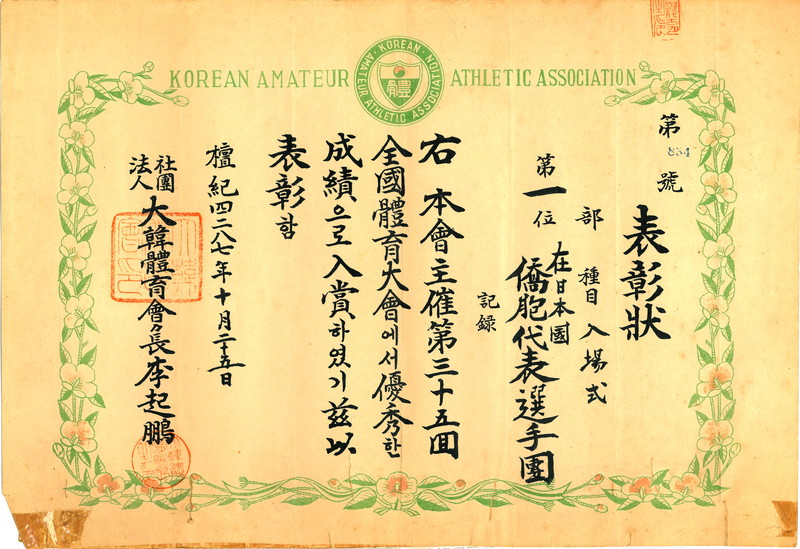 KOREAN AMATEUR ATHLETIC ASSOCIATION
KOREAN AMATEUR ATHLETIC ASSOCIATION
體
第 834 號
表彰狀
部 種目 入場式
第一位 在日本國僑胞代表選手團
記録
右 本會主催第三十五回
全國體育大會에서優秀한
成績으로入賞하였기玆以
表彰함
檀紀四二八七年十月二十五日
社團法人 大韓體育會長李起鵬